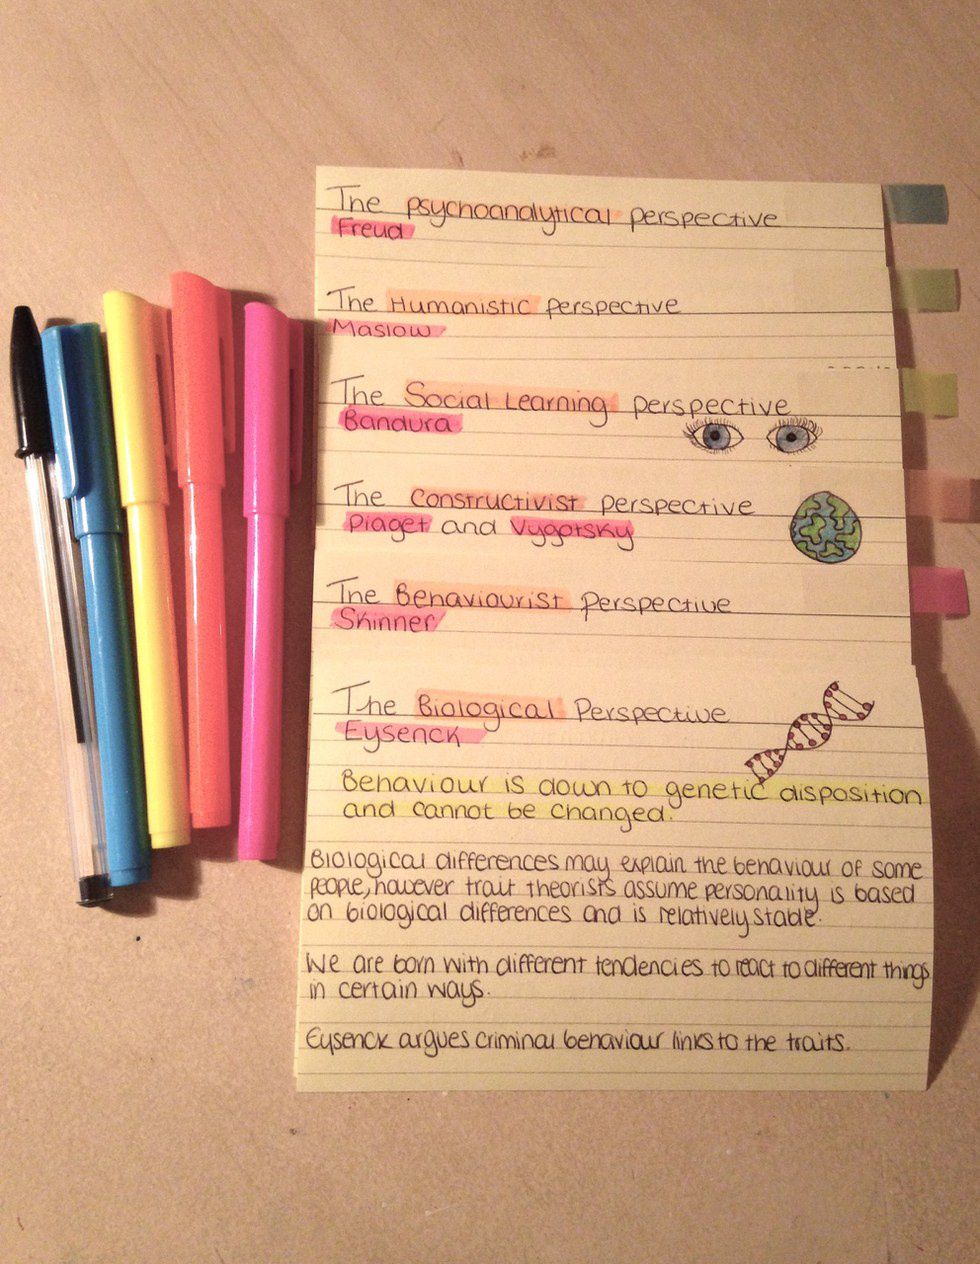 The psychoanalytical perspective
Freud
The Humanistic perspective
Maslow
The Social Learning perspective
Bandura
The Constructivist perspective
Piaget and Vygotsky
The Behaviourist perspective
Skinner
The Biological Perspective
Eysenck
Behaviour is down to genetic disposition
and cannot be changed.
Biological differences may explain the behaviour of some
people, however trait theorists assume personality is based
on biological differences and is relatively stable.
We are born with different tendencies to react to different things
in certain ways.
Eysenck argues criminal behaviour links to the traits.